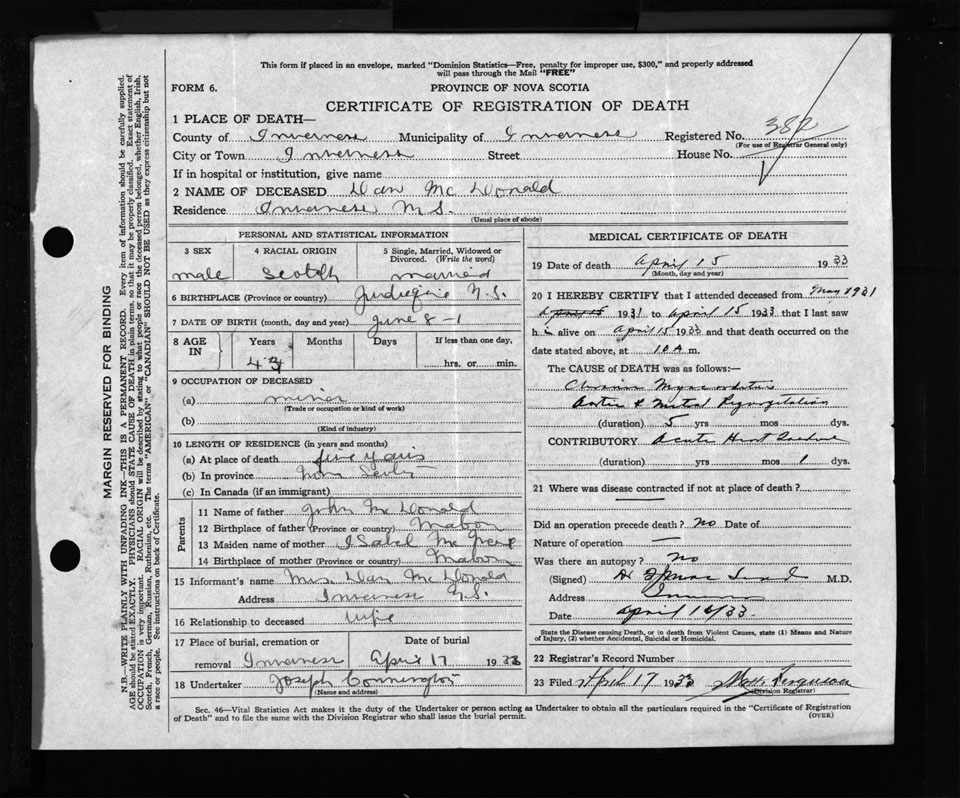 This form if placed in an envelope, marked "Dominion Statistics—Free, penalty for improper use, $300," and properly addressed
will pass through the Mail "FREE"
FORM 6.
PROVINCE OF NOVA SCOTIA
CERTIFICATE OF REGISTRATION OF DEATH
1 PLACE OF DEATH—
County of Inverness Municipality of Inverness Registered No. 382
(For use of Registrar General only)
City or Town Inverness Street House No.
If in hospital or institution, give name
2 NAME OF DECEASED Dan Mc Donald
Residence Inverness N.S.
(Usual place of abode)
PERSONAL AND STATISTICAL INFORMATION
3 SEX 4 RACIAL ORIGIN 5 Single, Married, Widowed or Divorced. (Write the word)
male Scotch married
6 BIRTHPLACE (Province or country) Judique N.S.
7 DATE OF BIRTH (month, day and year) June 8 - 1
8 AGE IN Years Months Days If less than one day,
43 hrs. or min.
9 OCCUPATION OF DECEASED
(a) miner
(Trade or occupation or kind of work)
(b)
(Kind of industry)
10 LENGTH OF RESIDENCE (in years and months)
(a) At place of death five years
(b) In province Nova Scotia
(c) In Canada (if an immigrant)
Parents
11 Name of father John Mc Donald
12 Birthplace of father (Province or country) Mabou
13 Maiden name of mother Isabel Mc
14 Birthplace of mother (Province or country) Mabou
15 Informant's name Mrs. Dan Mc Donald
Address Inverness N.S.
16 Relationship to deceased wife
17 Place of burial, cremation or removal Inverness Date of burial April 17 1933
18 Undertaker Joseph
(Name and address)
MEDICAL CERTIFICATE OF DEATH
19 Date of death April 15 1933
(Month, day and year)
20 I HEREBY CERTIFY that I attended deceased from May 1931
1931 to April 15 1933 that I last saw
h im alive on April 15 1933 and that death occurred on the
date stated above, at 10 A m.
The CAUSE of DEATH was as follows:—
Chronic Myocarditis
& Mitral Regurgitation
(duration) 5 yrs mos dys.
CONTRIBUTORY Acute Heart
(duration) yrs mos 1 dys.
21 Where was disease contracted if not at place of death?
Did an operation precede death? no Date of
Nature of operation —
Was there an autopsy? No
(Signed) Dr M.D.
Address
Date April 16/33
State the Disease causing Death, or in death from Violent Causes, state (1) Means and Nature
of Injury, (2) whether Accidental, Suicidal or Homicidal.
22 Registrar's Record Number
23 Filed April 17 1933 Ferguson
(Division Registrar)
Sec. 46—Vital Statistics Act makes it the duty of the Undertaker or person acting as Undertaker to obtain all the particulars required in the "Certificate of Registration
of Death" and to file the same with the Division Registrar who shall issue the burial permit.
(OVER)
MARGIN RESERVED FOR BINDING
N.B.—WRITE PLAINLY WITH UNFADING INK—THIS IS A PERMANENT RECORD. Every item of information should be carefully supplied.
AGE should be stated EXACTLY. PHYSICIANS should STATE CAUSE OF DEATH in plain terms, so that it may be properly classified. Exact statement of
OCCUPATION is very important. RACIAL ORIGIN will be described by stating to what people or race the deceased person belonged, whether English, Irish,
Scotch, French, German, Russian, Ruthenian, etc. The terms "AMERICAN" or "CANADIAN" SHOULD NOT BE USED as they express citizenship but not
a race or people. See instructions on back of Certificate.